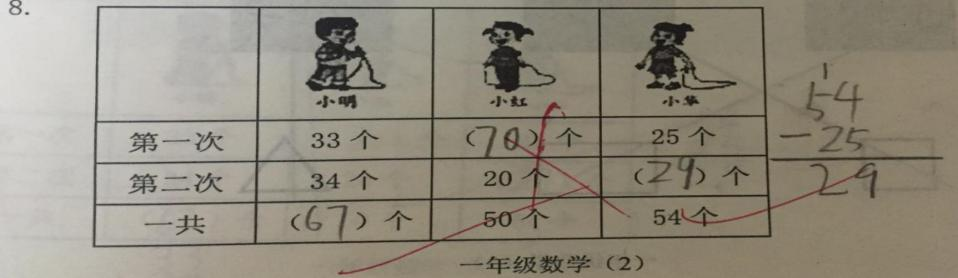 8.
小明 小红 小华
第一次 33 个 (70) 个 25 个
第二次 34 个 20 个 (29) 个
一共 (67) 个 50 个 54 个
1
54
-25
29
一年级数学(2)